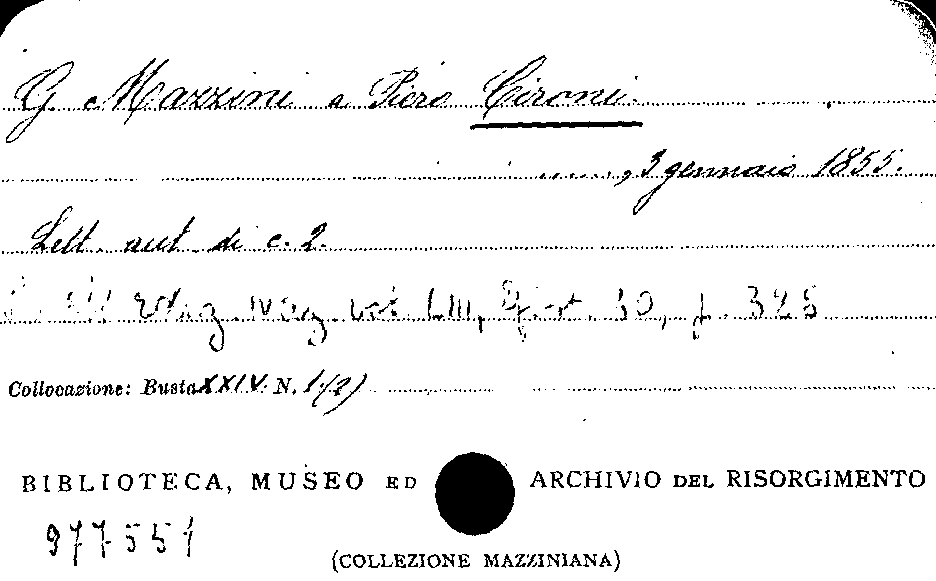 G. Mazzini a Piero Cironi.
......, 3 gennaio 1855.
Lett. aut. di c. 2.
Ediz. Naz. vol. LIII, Epist. 30, p. 325
Collocazione: Busta XXIV. N. 1(2)
BIBLIOTECA, MUSEO ED ARCHIVIO DEL RISORGIMENTO
977551
(COLLEZIONE MAZZINIANA)